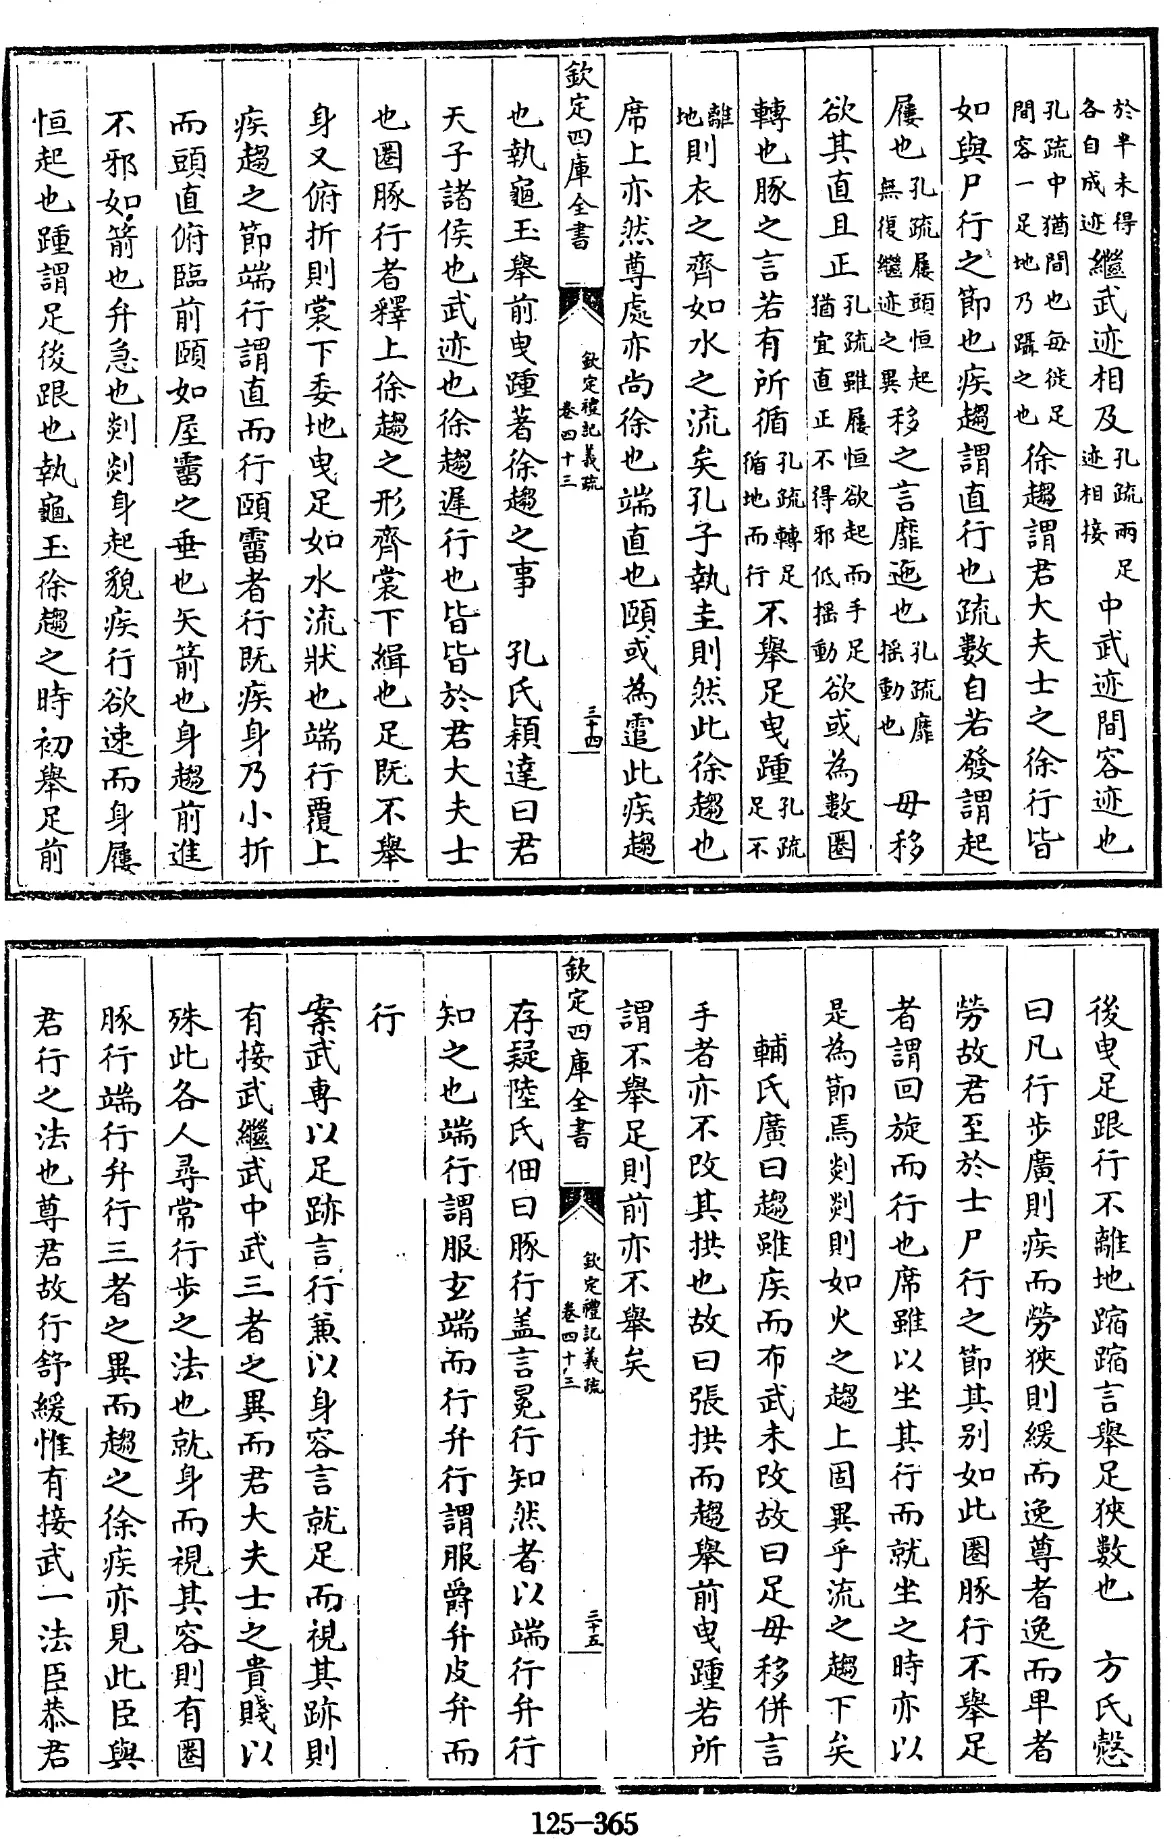 於半未得各自成迹繼武迹相及孔疏兩足迹相接中武迹間容迹也
孔疏中猶間也每徙足間容一足地乃躡之也徐趨謂君大夫士之徐行皆
如與尸行之節也疾趨謂直行也疏數自若發謂起
屨也孔疏屨頭恒起無復繼迹之異移之言靡迤也孔疏靡摇動也　毋移
欲其直且正孔疏雖屨恒欲起而手足猶宜直正不得邪低摇動欲或為數圈
轉也豚之言若有所循孔疏轉足循地而行不舉足曳踵孔疏足不
離地則衣之齊如水之流矣孔子執圭則然此徐趨也
席上亦然尊處亦尚徐也端直也頤或為霆此疾趨
欽定四庫全書
欽定禮記義疏
卷四十三
三十四
也執龜玉舉前曳踵著徐趨之事　孔氏穎達曰君
天子諸侯也武迹也徐趨遲行也皆皆於君大夫士
也圈豚行者釋上徐趨之形齊裳下緝也足既不舉
身又俯折則裳下委地曳足如水流狀也端行覆上
疾趨之節端行謂直而行頤霤者行既疾身乃小折
而頭直俯臨前頤如屋霤之垂也矢箭也身趨前進
不邪如箭也弁急也剡剡身起貌疾行欲速而身屨
恒起也踵謂足後跟也執龜玉徐趨之時初舉足前
後曳足跟行不離地蹜蹜言舉足狹數也　方氏慤
曰凡行步廣則疾而勞狹則緩而逸尊者逸而卑者
勞故君至於士尸行之節其别如此圈豚行不舉足
者謂回旋而行也席雖以坐其行而就坐之時亦以
是為節焉剡剡則如火之趨上固異乎流之趨下矣
輔氏廣曰趨雖疾而布武未改故曰足毋移併言
手者亦不改其拱也故曰張拱而趨舉前曳踵若所
謂不舉足則前亦不舉矣
欽定四庫全書
欽定禮記義疏
卷四十三
三十五
存疑陸氏佃曰豚行盖言冕行知然者以端行弁行
知之也端行謂服玄端而行弁行謂服爵弁皮弁而
行
案武專以足跡言行兼以身容言就足而視其跡則
有接武繼武中武三者之異而君大夫士之貴賤以
殊此各人尋常行步之法也就身而視其容則有圈
豚行端行弁行三者之異而趨之徐疾亦見此臣與
君行之法也尊君故行舒緩惟有接武一法臣恭君
125-365